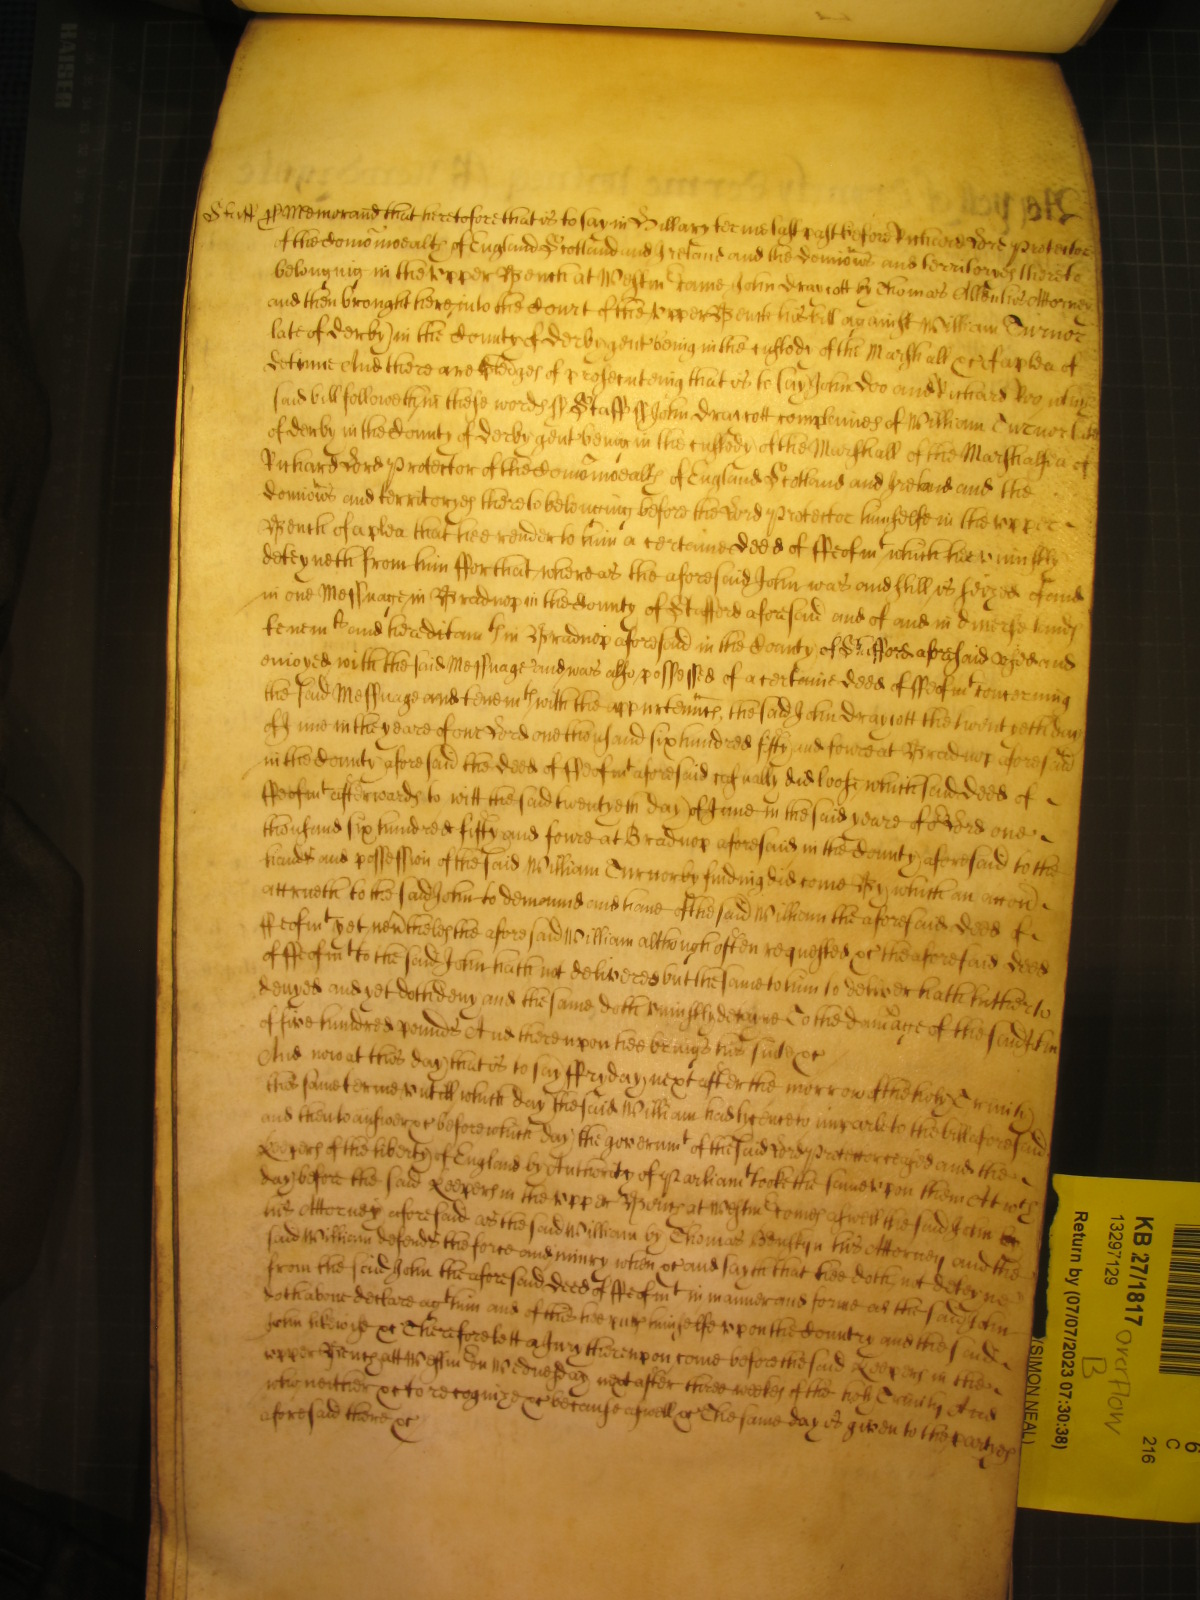 Staff ss Memorand that heretofore that is to say in Hillary terme last past before Richard Lord Protector
of the Comonwealth of England Scotland and Ireland and the Dominions and territoryes thereto
belonging in the Upper Bench at Westm came John Draycott by Thomas Allen his Attorney
and then brought here into the Court of the Upper Bench his bill against William Turnor
late of Derby in the County of Derby gent being in the custody of the Marshall &c of a plea of
detinue And there are pledges of prosecuteing that is to say John Doo and Richard Roo which
said bill followeth in these words ss Staff ss John Draycott complaines of William Turnor late
of Derby in the County of Derby gent being in the custody of the Marshall of the Marshalsea of
Richard Lord Protector of the Comonwealth of England Scotland and Ireland and the
Dominions and territoryes thereto belonging before the Lord Protector himselfe in the upper
Bench of a plea that hee render to him a certaine Deed of ffeofmt which hee uniustly
deteyneth from him ffor that whereas the aforesaid John was and still is seized of and
in one Messuage in Bradnop in the County of Stafford aforesaid and of and in diverse lands
tenemts and hereditamts in Bradnop aforesaid in the County of Stafford aforesaid used and
enioyed with the said Messuage and was also possessed of a certaine Deed of ffeofmt concerning
the said Messuage and tenemts with the appurtenncs, the said John Draycott the twentyeth day
of June in the yeare of our Lord one thousand six hundred fifty and foure at Bradnop aforesaid
in the County aforesaid the Deed of ffeofmt aforesaid casually did loose which said Deed of
ffeofmt afterwards to witt the said twentyeth day of June in the said yeare of or Lord one
thousand six hundred fifty and foure at Bradnop aforesaid in the County aforesaid to the
hands and possession of the said William Turnor by finding did come By which an accon
accrueth to the said John to demaund and have of the said William the aforesaid Deed of
ffeofmt yet neverthelesse the aforesaid William although often requested &c the aforesaid Deed
of ffeofmt to the said John hath not delivered but the same to him to deliver hath hitherto
denyed and yet doth deny and the same doth uniustly deteyne To the damage of the said John
of five hundred pounds And thereupon hee brings this suite &c
And now at this day that is to say ffryday next after the morrow of the holy Trinity
this same terme untill which day the said William had licence to imparle to the bill aforesaid
and then to answer &c before which day the governmt of the said Lord Protector ceased and the
Keepers of the liberty of England by Authority of Parliamt tooke the same upon them At wch
day before the said Keepers in the upper Bench at Westm comes aswell the said John by
his Attorney aforesaid as the said William by Thomas Benskyn his Attorney and the
said William defends the force and iniury when &c and sayth that hee doth not deteyne
from the said John the aforesaid Deed of ffeofmt in manner and forme as the said John
doth above declare agt him and of this hee putts himselfe upon the Country and the said
John likewise &c Therefore lett a Jury thereupon come before the said Keepers in the
upper Bench att Westm on Wednesday next after three weekes of the holy Trinity And
who neither &c to recognize &c because aswell &c The same day is given to the partyes
aforesaid there &c
KB 27/1817
13297129
Return by (07/07/2023 07:30:38)
(SIMON NEAL)
overflow
B
216
C
6
HAISER